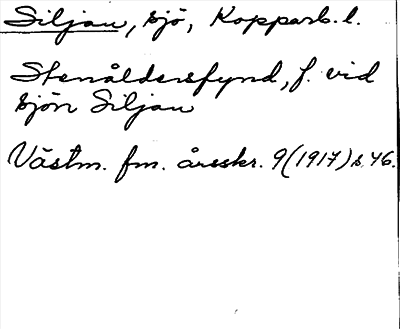 Siljan, sjö, Kopparb. l.
Stenåldersfynd, f. vid
sjön Siljan
Västm. fm. årsskr. 9(1917) s. 46.